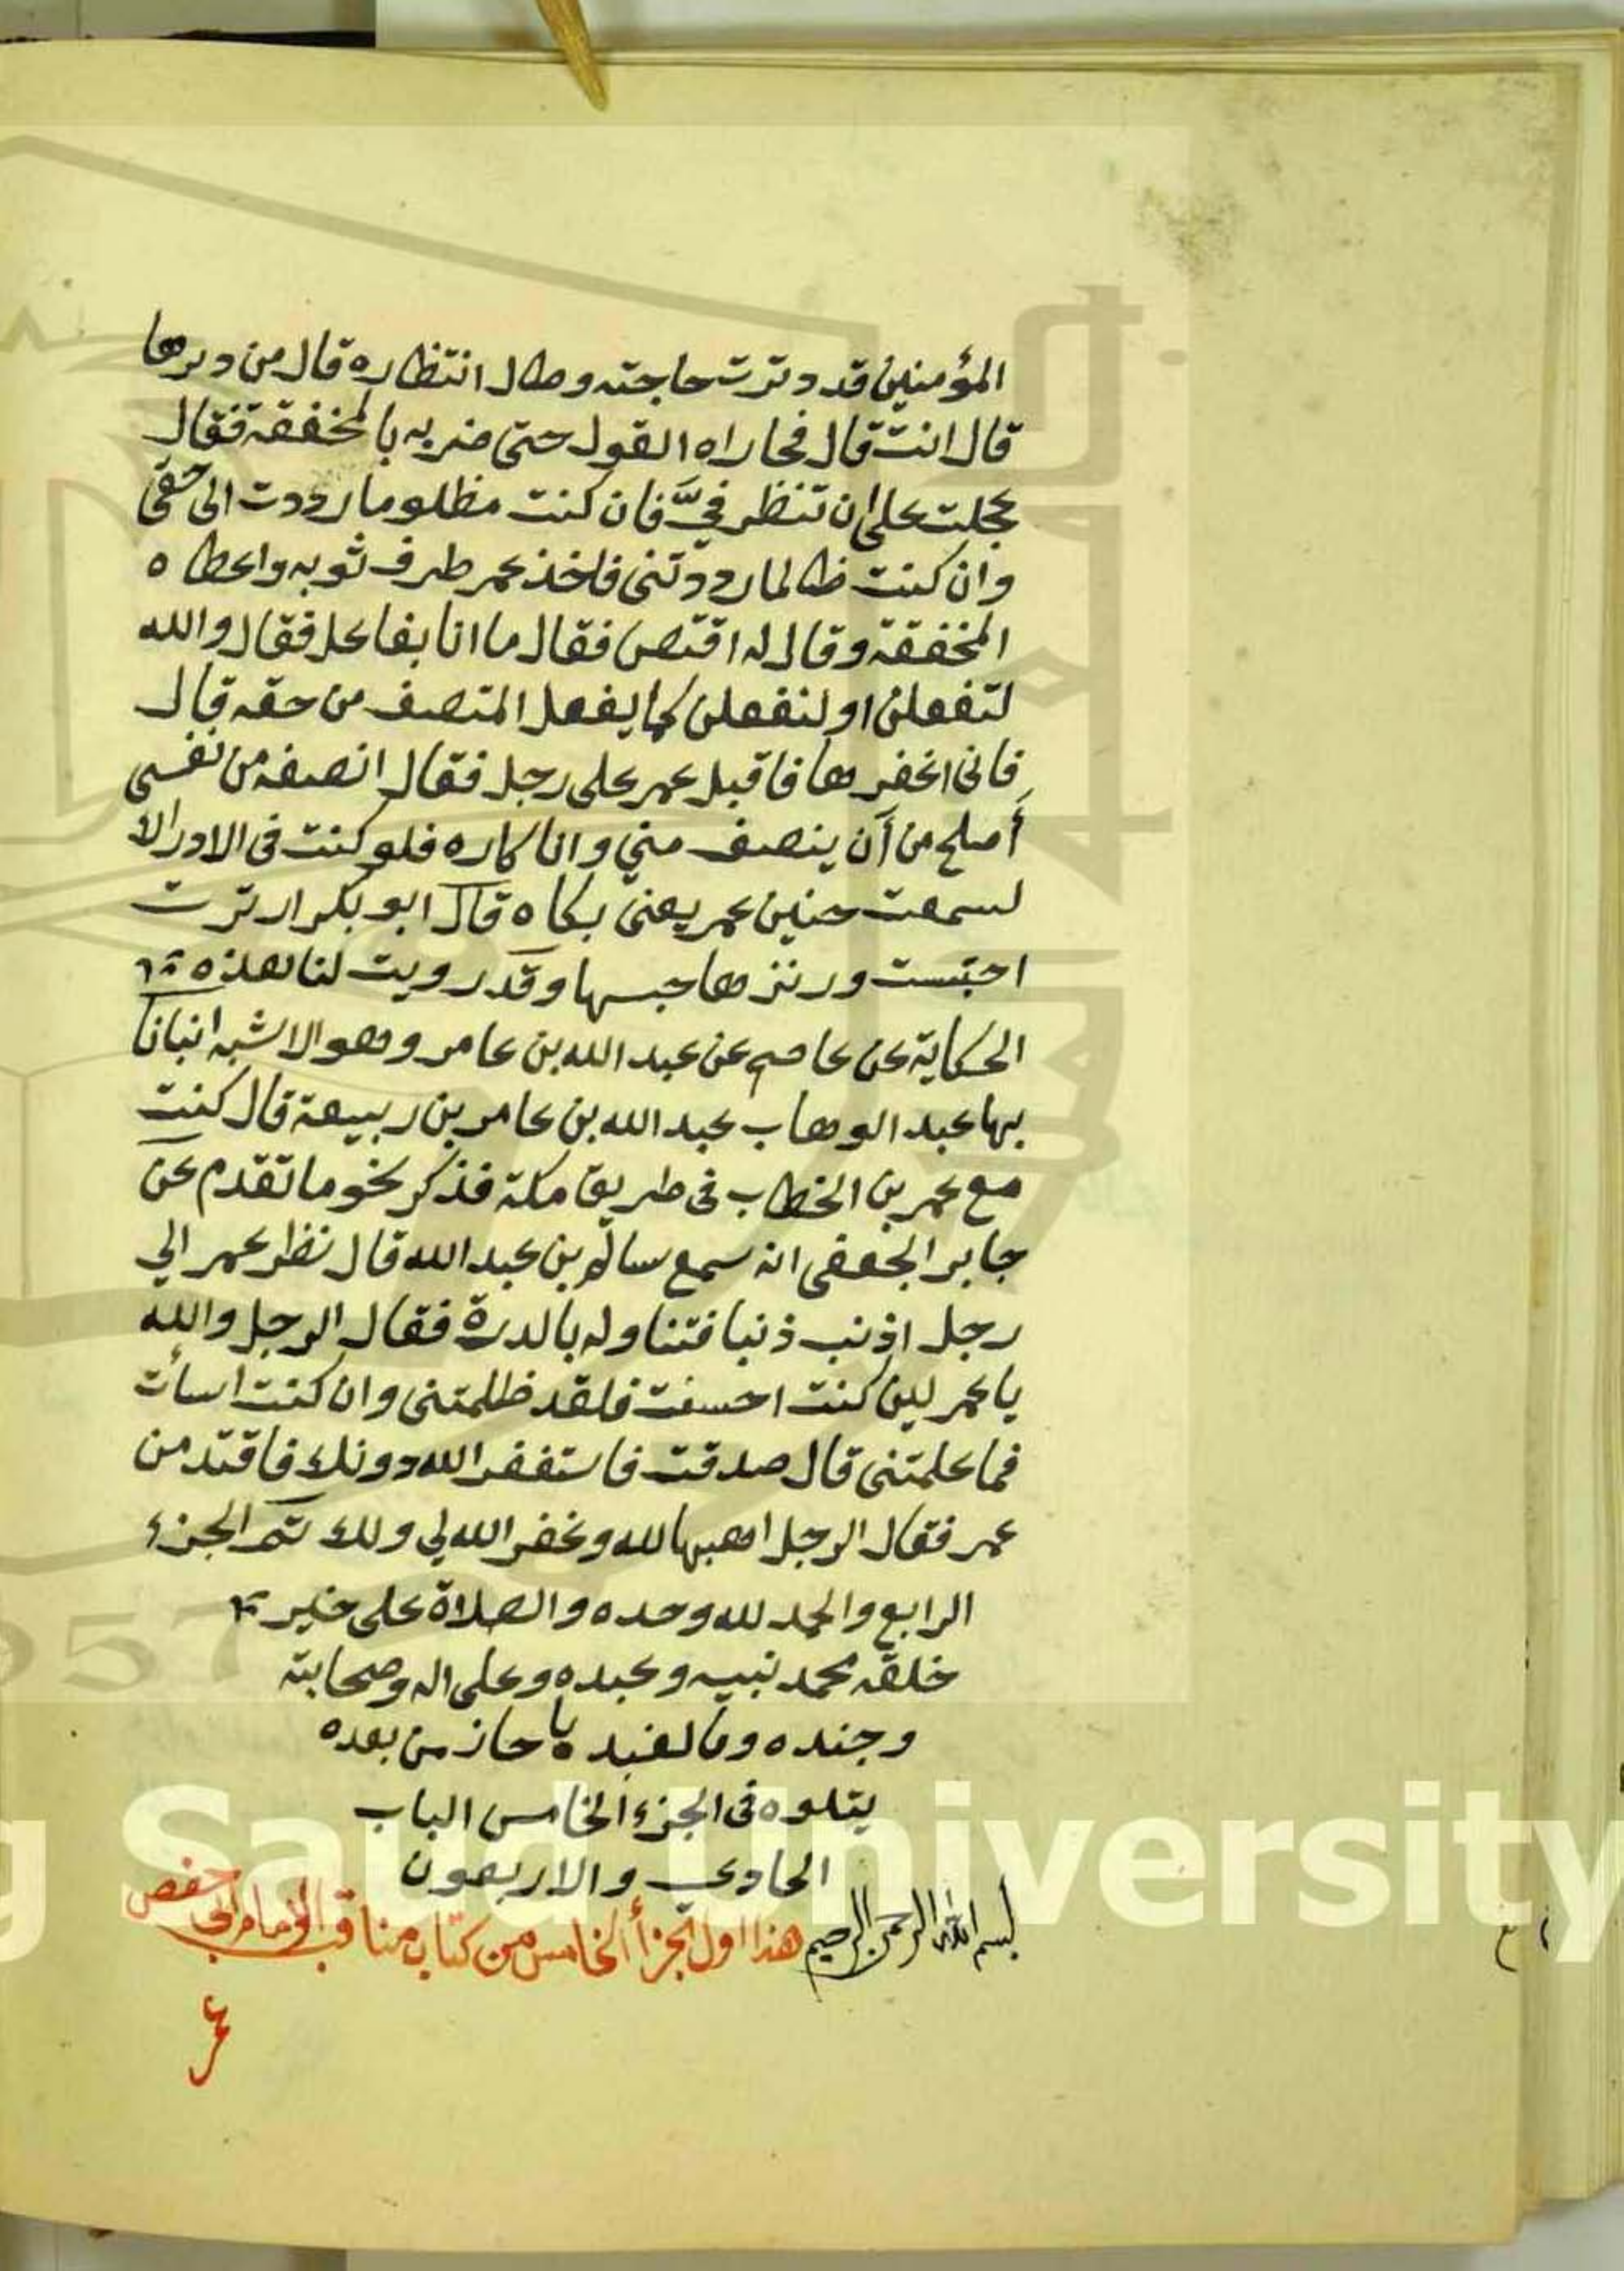 المؤمنين قد دترت حاجته وطال انتظاره قال من دبرها
قال انت قال فجاراه القول حتى ضربه بالمخفقة فقال
عجلت على ان تنظر فيَّ فان كنت مظلوما رددت الى حقى
وان كنت ظالما رددتنى فاخذ عمر طرف ثوبه واعطاه
المخفقة وقال له اقتص فقال ما انا بفاعل فقال والله
لتفعلن او لنفعلن كما يفعل المتصف من حقه قال
فانى اغفرها فاقبل عمر على رجل فقال انصفه من نفسى
أصلح من أن ينصف مني وانا كاره فلو كنت فى الادراك
لسمعت حنين عمر يعنى بكاه قال ابو بكر ارترت
احتبست ورنزها حبسها وقد رويت لنا هذه
الحكاية عن عاصم عن عبد الله بن عامر وهو الاشبه انبانا
بها عبد الوهاب عبد الله بن عامر بن ربيعة قال كنت
مع عمر بن الخطاب فى طريق مكة فذكر نحو ما تقدم عن
جابر الجعفى انه سمع سالم بن عبد الله قال نظر عمر الي
رجل اذنب ذنبا فتناوله بالدرة فقال الرجل والله
يا عمر لين كنت احسنت فلقد ظلمتنى وان كنت اسأت
فما علمتنى قال صدقت فاستغفر الله دونك فاقتد من
عمر فقال الرجل اهبها لله وغفر الله لي ولك تم الجزء
الرابع والحمد لله وحده والصلاة على خير
خلقه محمد نبيه وعبده وعلى اله وصحابته
وجنده حاز من بعده
يتلوه فى الجزء الخامس الباب
الحادي والاربعون
بسم الله الرحمن الرحيم هذا اول الجزأ الخامس من كتاب مناقب الإمام أبي حفص
عمر
King Saud University
1957